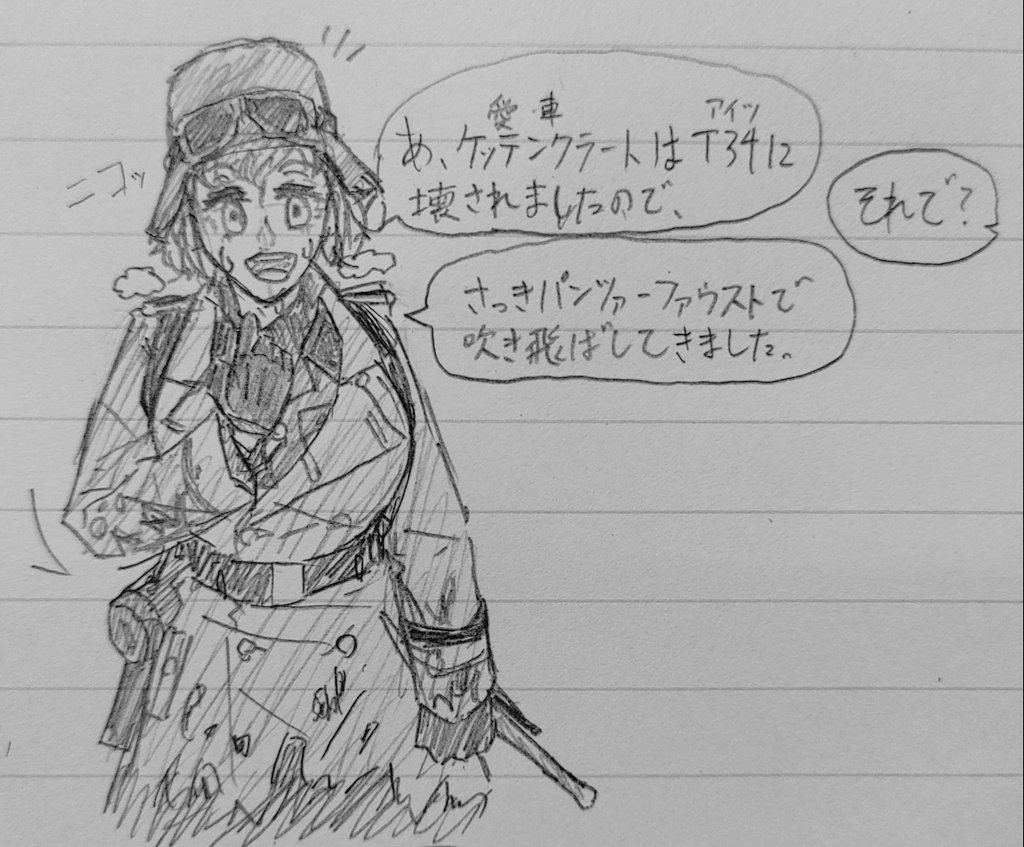 ニコッ
愛車
アイツ
あ、ケッテンクラートはT34に
壊されましたので、
それで?
さっきパンツァーファウストで
吹き飛ばしてきました。